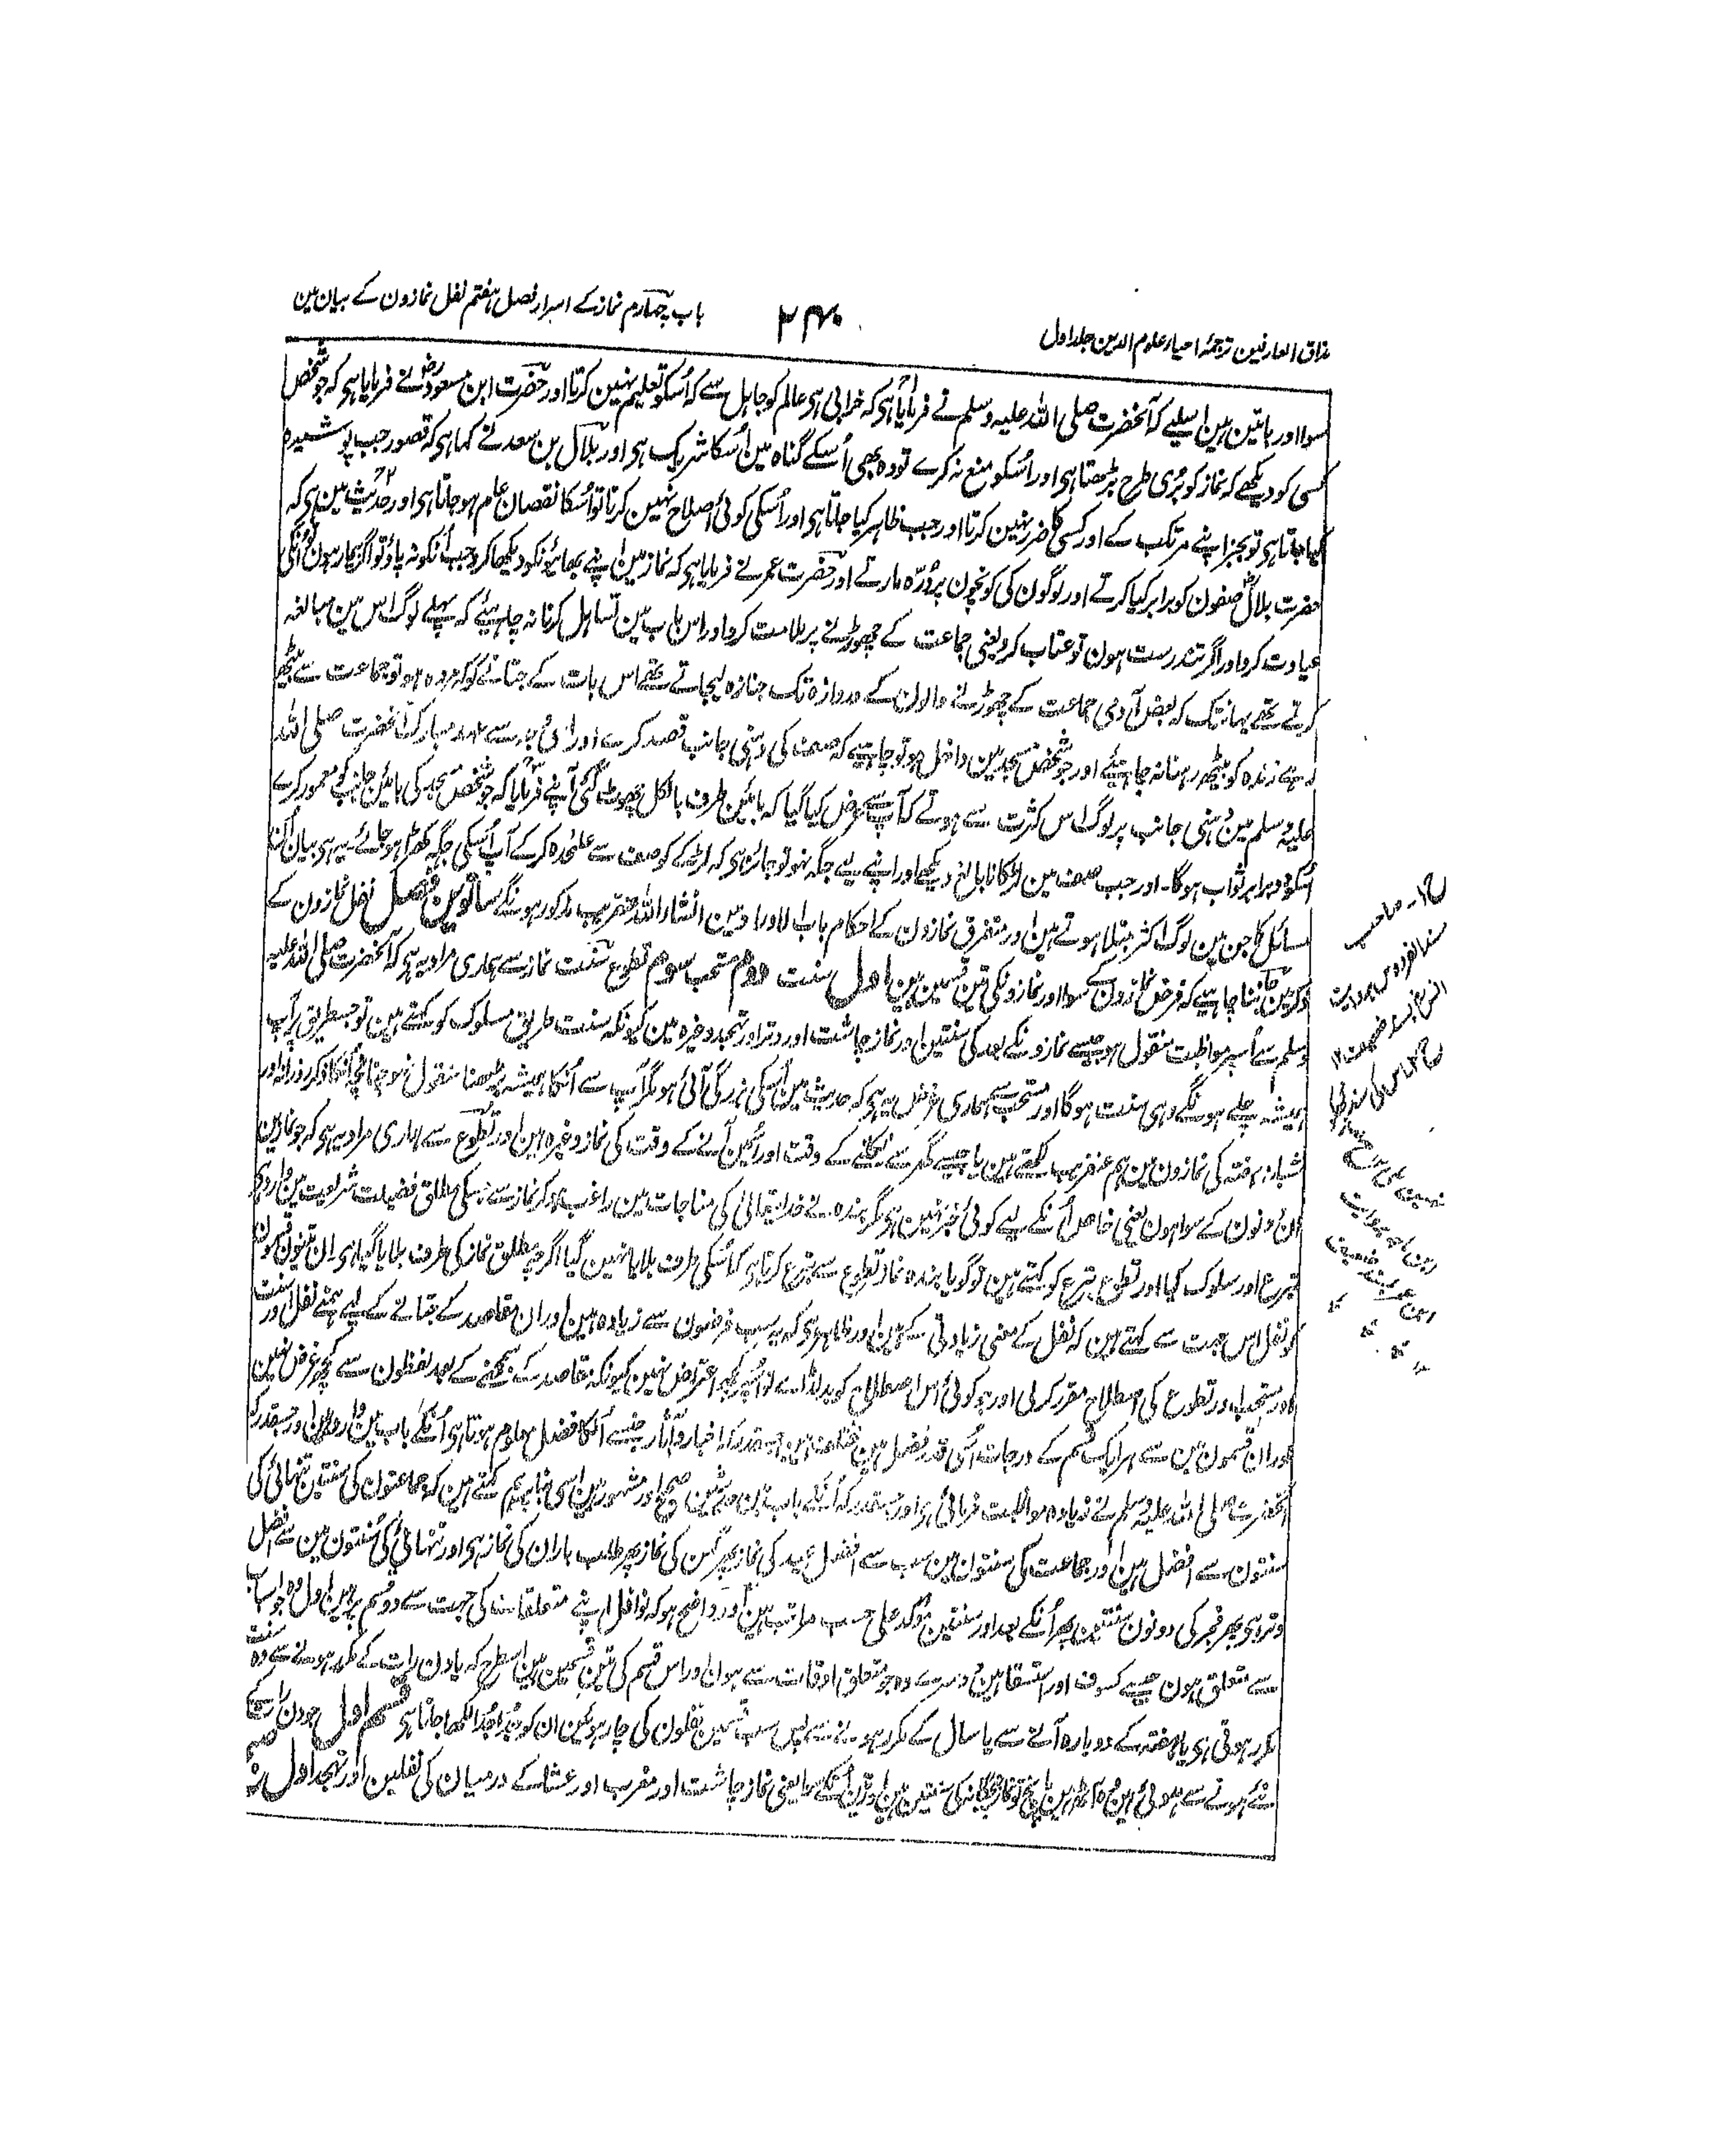 مذاق العارفین ترجمۂ احیاء علوم الدین جلد اول
۲۴۰
باب چہارم نماز کے اسرار فصل ہفتم نفل نمازون کے بیان مین
سوا اور باتین ہین اسلیے کہ آنحضرت صلی اللہ علیہ وسلم نے فرمایا ہی کہ خرابی ہی عالم کو جاہل سے کہ اُسکو تعلیم نہین کرتا اور حضرت ابن مسعود رض نے فرمایا ہی کہ جو شخص
کسی کو دیکھے کہ نماز کو بُری طرح پڑھتا ہی اور اُسکو منع نہ کرے تو وہ بھی اُسکے گناہ مین اُسکا شریک ہی اور بلال بن سعد نے کہا ہی کہ قصور جب پوشیدہ
کیا جاتا ہی تو بجز اپنے مرتکب کے اور کسی کا ضرر نہین کرتا اور جب ظاہر کیا جاتا ہی اور اُسکی کوئی اصلاح نہین کرتا تو اُسکا نقصان عام ہو جاتا ہی اور حدیث مین ہی کہ
حضرت بلال صفون کو برابر کیا کرتے اور لوگون کی کونچون پر دُرّہ مارتے اور حضرت عمر نے فرمایا ہی کہ نماز مین اپنے بھائیونکو دیکھا کرو جب اُنکو نہ پاؤ تو اگر بیمار ہون تو اُنکی
عیادت کرو اور اگر تندرست ہون تو عتاب کرو یعنی جماعت کے چھوڑنے پر ملامت کرو اور اس باب مین تساہل کرنا نہ چاہیئے کہ پہلے لوگ اس مین مبالغہ
کرتے تھے یہانتک کہ بعض آدمی جماعت کے چھوڑنے والون کے دروازہ تک جنازہ لیجاتے تھے اس بات کے جتانے کو کہ مردہ ہو تو جماعت سے بیٹھ
رہے زندہ کو بیٹھ رہنا نہ چاہیئے اور جو شخص مسجد مین داخل ہو تو چاہیے کہ صف کی دہنی جانب قصد کرے اور اسی وجہ سے عہد مبارک آنحضرت صلی اللہ
علیہ وسلم مین دہنی جانب پر لوگ اس کثرت سے ہوتے کہ آپ سے عرض کیا گیا کہ بائین طرف بالکل چھوٹ گئی آپنے فرمایا کہ جو شخص مسجد کی بائین جانب کو معمور کرے
اُسکو دوہرا ثواب ہوگا۔ اور جب صف مین لڑکا نابالغ دیکھے اور اپنے لیے جگہ نہو تو جائز ہی کہ لڑکے کو صف سے علٰحدہ کر کے آپ اُسکی جگہ کھڑا ہو جائے۔ یہ ہی بیان اُن
مسائل کا جن مین لوگ اکثر مبتلا ہوتے ہین اور متفرق نمازون کے احکام باب الاوراد مین انشاء اللہ عنقریب مذکور ہونگے ساتوین فصل نفل نمازون کے
ذکر مین جاننا چاہیے کہ فرض نمازون کے سوا اور نمازونکی تین قسمین ہین اول سنت دوم مستحب سوم تطوع سنت نماز سے ہماری مراد یہ ہی کہ آنحضرت صلی اللہ علیہ
وسلم سے اُسپر مواظبت منقول ہو جیسے نمازونکے بعد کی سنتین اور نماز چاشت اور وتر اور تہجد وغیرہ ہین کیونکہ سنت طریق مسلوک کو کہتے ہین تو جس طریق پر آپ
ہمیشہ چلے ہونگے وہی سنت ہوگا اور مستحب سے ہماری غرض یہ ہی کہ حدیث مین اُسکی بزرگی آئی ہو مگر آپ سے اُسکا ہمیشہ پڑھنا منقول نہو چنانچہ اُنکا ذکر روزانہ اور
شبانہ ہفتہ کی نمازون مین ہم عنقریب لکھتے ہین یا جیسے گھر سے نکلنے کے وقت اور اُسمین آنے کے وقت کی نماز وغیرہ ہین اور تطوع سے ہماری مراد یہ ہی کہ جو نمازین
ان دونون کے سوا ہون یعنی خاص اُنکے لیے کوئی خبر نہین ہی مگر بندہ نے خدا یتعالیٰ کی مناجات مین راغب ہو کر نماز سے جسکی مطلق فضیلت شریعت مین وارد ہی
تبرع اور سلوک کیا اور تطوع تبرع کو کہتے ہین تو گویا بندہ نماز تطوع سے تبرع کرتا ہی کہ اُسکی طرف بلایا نہین گیا اگرچہ مطلق نماز کی طرف بلایا گیا ہی ان تینون قسمون
کو نفل اس جہت سے کہتے ہین کہ نفل کے معنی زیادتی کے ہین اور ظاہر ہی کہ یہ سب فرضون سے زیادہ ہین اور ان مقاصد کے جتانے کے لیے ہمنے نفل اور سنت
اور مستحب اور تطوع کی اصطلاح مقرر کر لی اور جو کوئی اس اصطلاح کو بدل ڈالے تو اُسپر کچھ اعتراض نہین کیونکہ مقاصد کے سمجھنے کے بعد لفظون سے کچھ غرض نہین
اور ان قسمون مین سے ہر ایک قسم کے درجات اُسی قدر فضل مین مختلف ہین جسقدر کہ اخبار و آثار جنسے اُنکا فضل معلوم ہوتا ہی اُنکے باب مین وارد ہین اور جسقدر کہ
آنحضرت صلی اللہ علیہ وسلم نے زیادہ مواظبت فرمائی ہی اور جسقدر کہ اُنکے باب مین حدیثین صحیح اور مشہور ہین اسی بنا پر ہم کہتے ہین کہ جماعتون کی سنتین تنہائی کی
سنتون سے افضل ہین اور جماعت کی سنتون مین سب سے افضل عید کی نماز پھر گہن کی نماز پھر طلب باران کی نماز ہی اور تنہائی کی سنتون مین سے افضل
وتر ہی پھر فجر کی دونون سنتین پھر اُنکے بعد اور سنتین مؤکد علی حسب مراتب ہین اور واضح ہو کہ نوافل اپنے متعلقات کی جہت سے دو قسم پر ہین اول وہ جو اسباب
سے متعلق ہون جیسے کسوف اور استسقا ہین دوسرے وہ جو متعلق اوقات سے ہون اور اس قسم کی تین قسمین ہین اسطرح کہ یا دن رات کے مکرر ہونے سے وہ سنت
مکرر ہوتی ہی یا ہفتہ کے دوبارہ آنے سے یا سال کے مکرر ہونے سے پس سب قسمین نفلون کی چار ہوئین ان کو جُدا جُدا لکھا جاتا ہی قسم اول جو دن رات کے
نئے ہونے سے ہوتی ہین وہ آٹھ ہین پانچ تو نماز پنجگانہ کی سنتین ہین اور تین اُنکے سوا یعنی نماز چاشت اور مغرب اور عشا کے درمیان کی نفلین اور تہجد اول
ح۱۔ صاحب
مسند الفردوس بروایت
انس بسند ضعیف ۱۲
بسند ضعیف